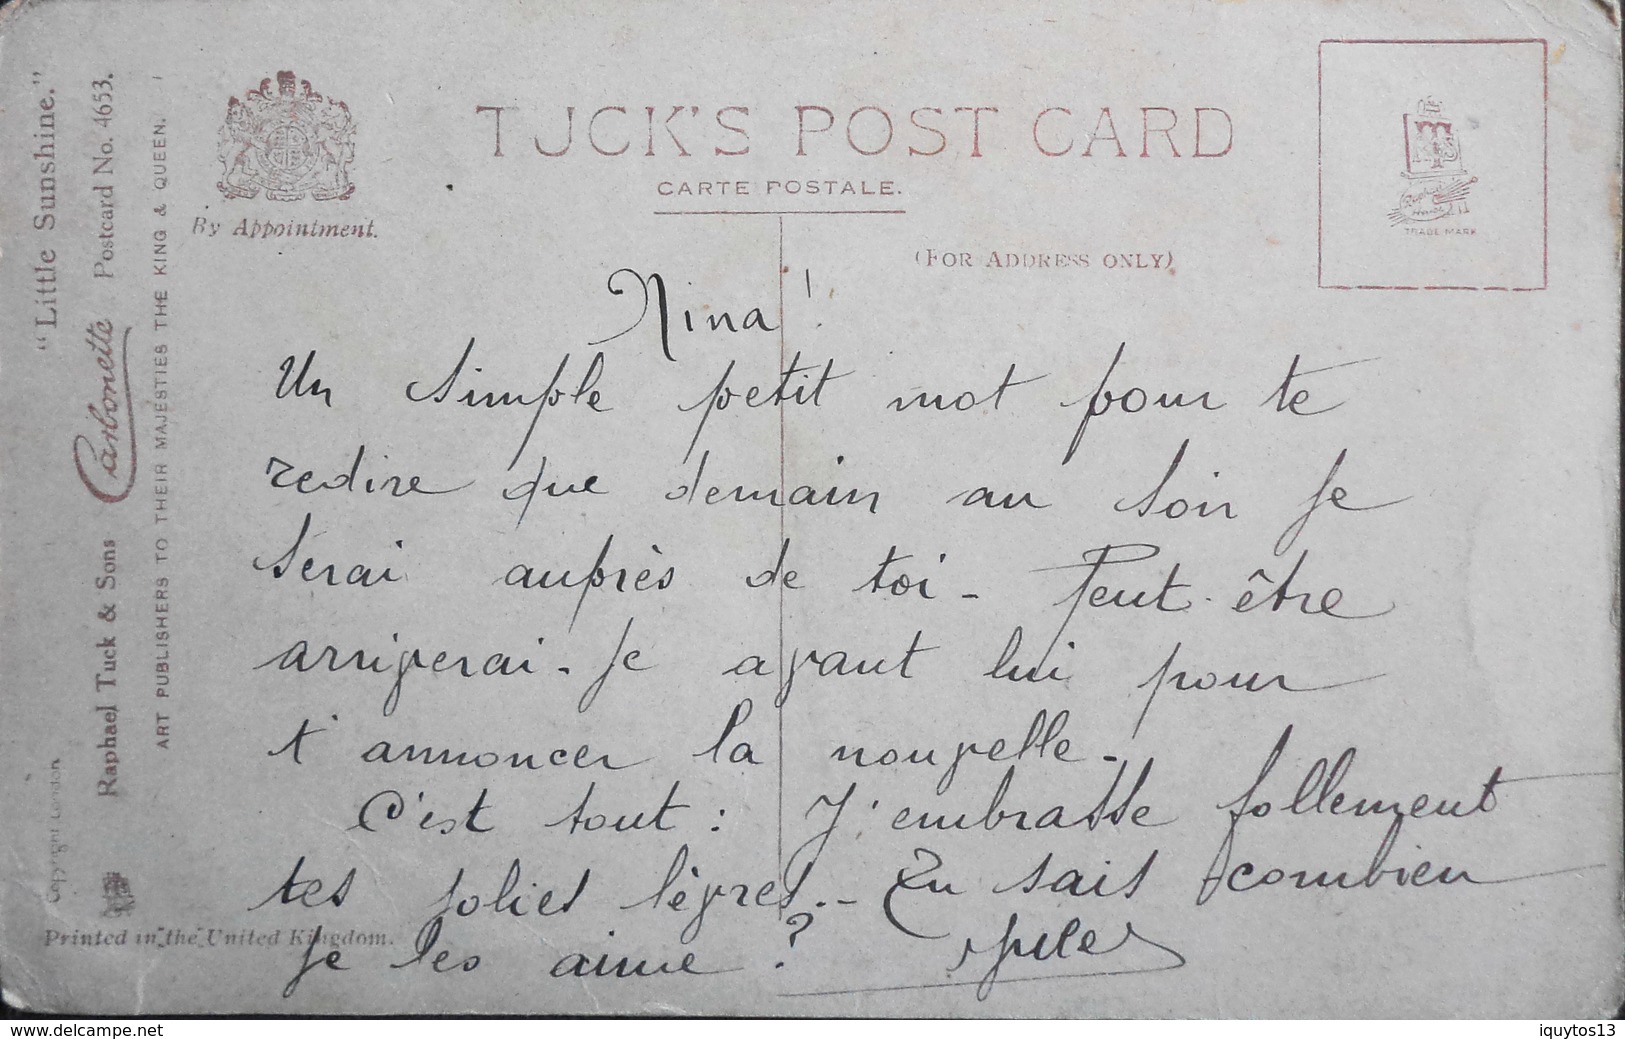 "Little Sunshine."
Raphael Tuck & Sons Carbonette Postcard No. 4653.
ART PUBLISHERS TO THEIR MAJESTIES THE KING & QUEEN.
Copyright London
Printed in the United Kingdom.
By Appointment.
TUCK'S POST CARD
CARTE POSTALE.
(FOR ADDRESS ONLY)
TRADE MARK
Nina!
Un simple petit mot pour te
redire que demain au soir je
serai auprès de toi - Peut-être
arriverai-je avant lui pour
t'annoncer la nouvelle -
C'est tout : J'embrasse follement
tes jolies lèvres. - Tu sais combien
je les aime ?
Jules
www.delcampe.net
iquytos13